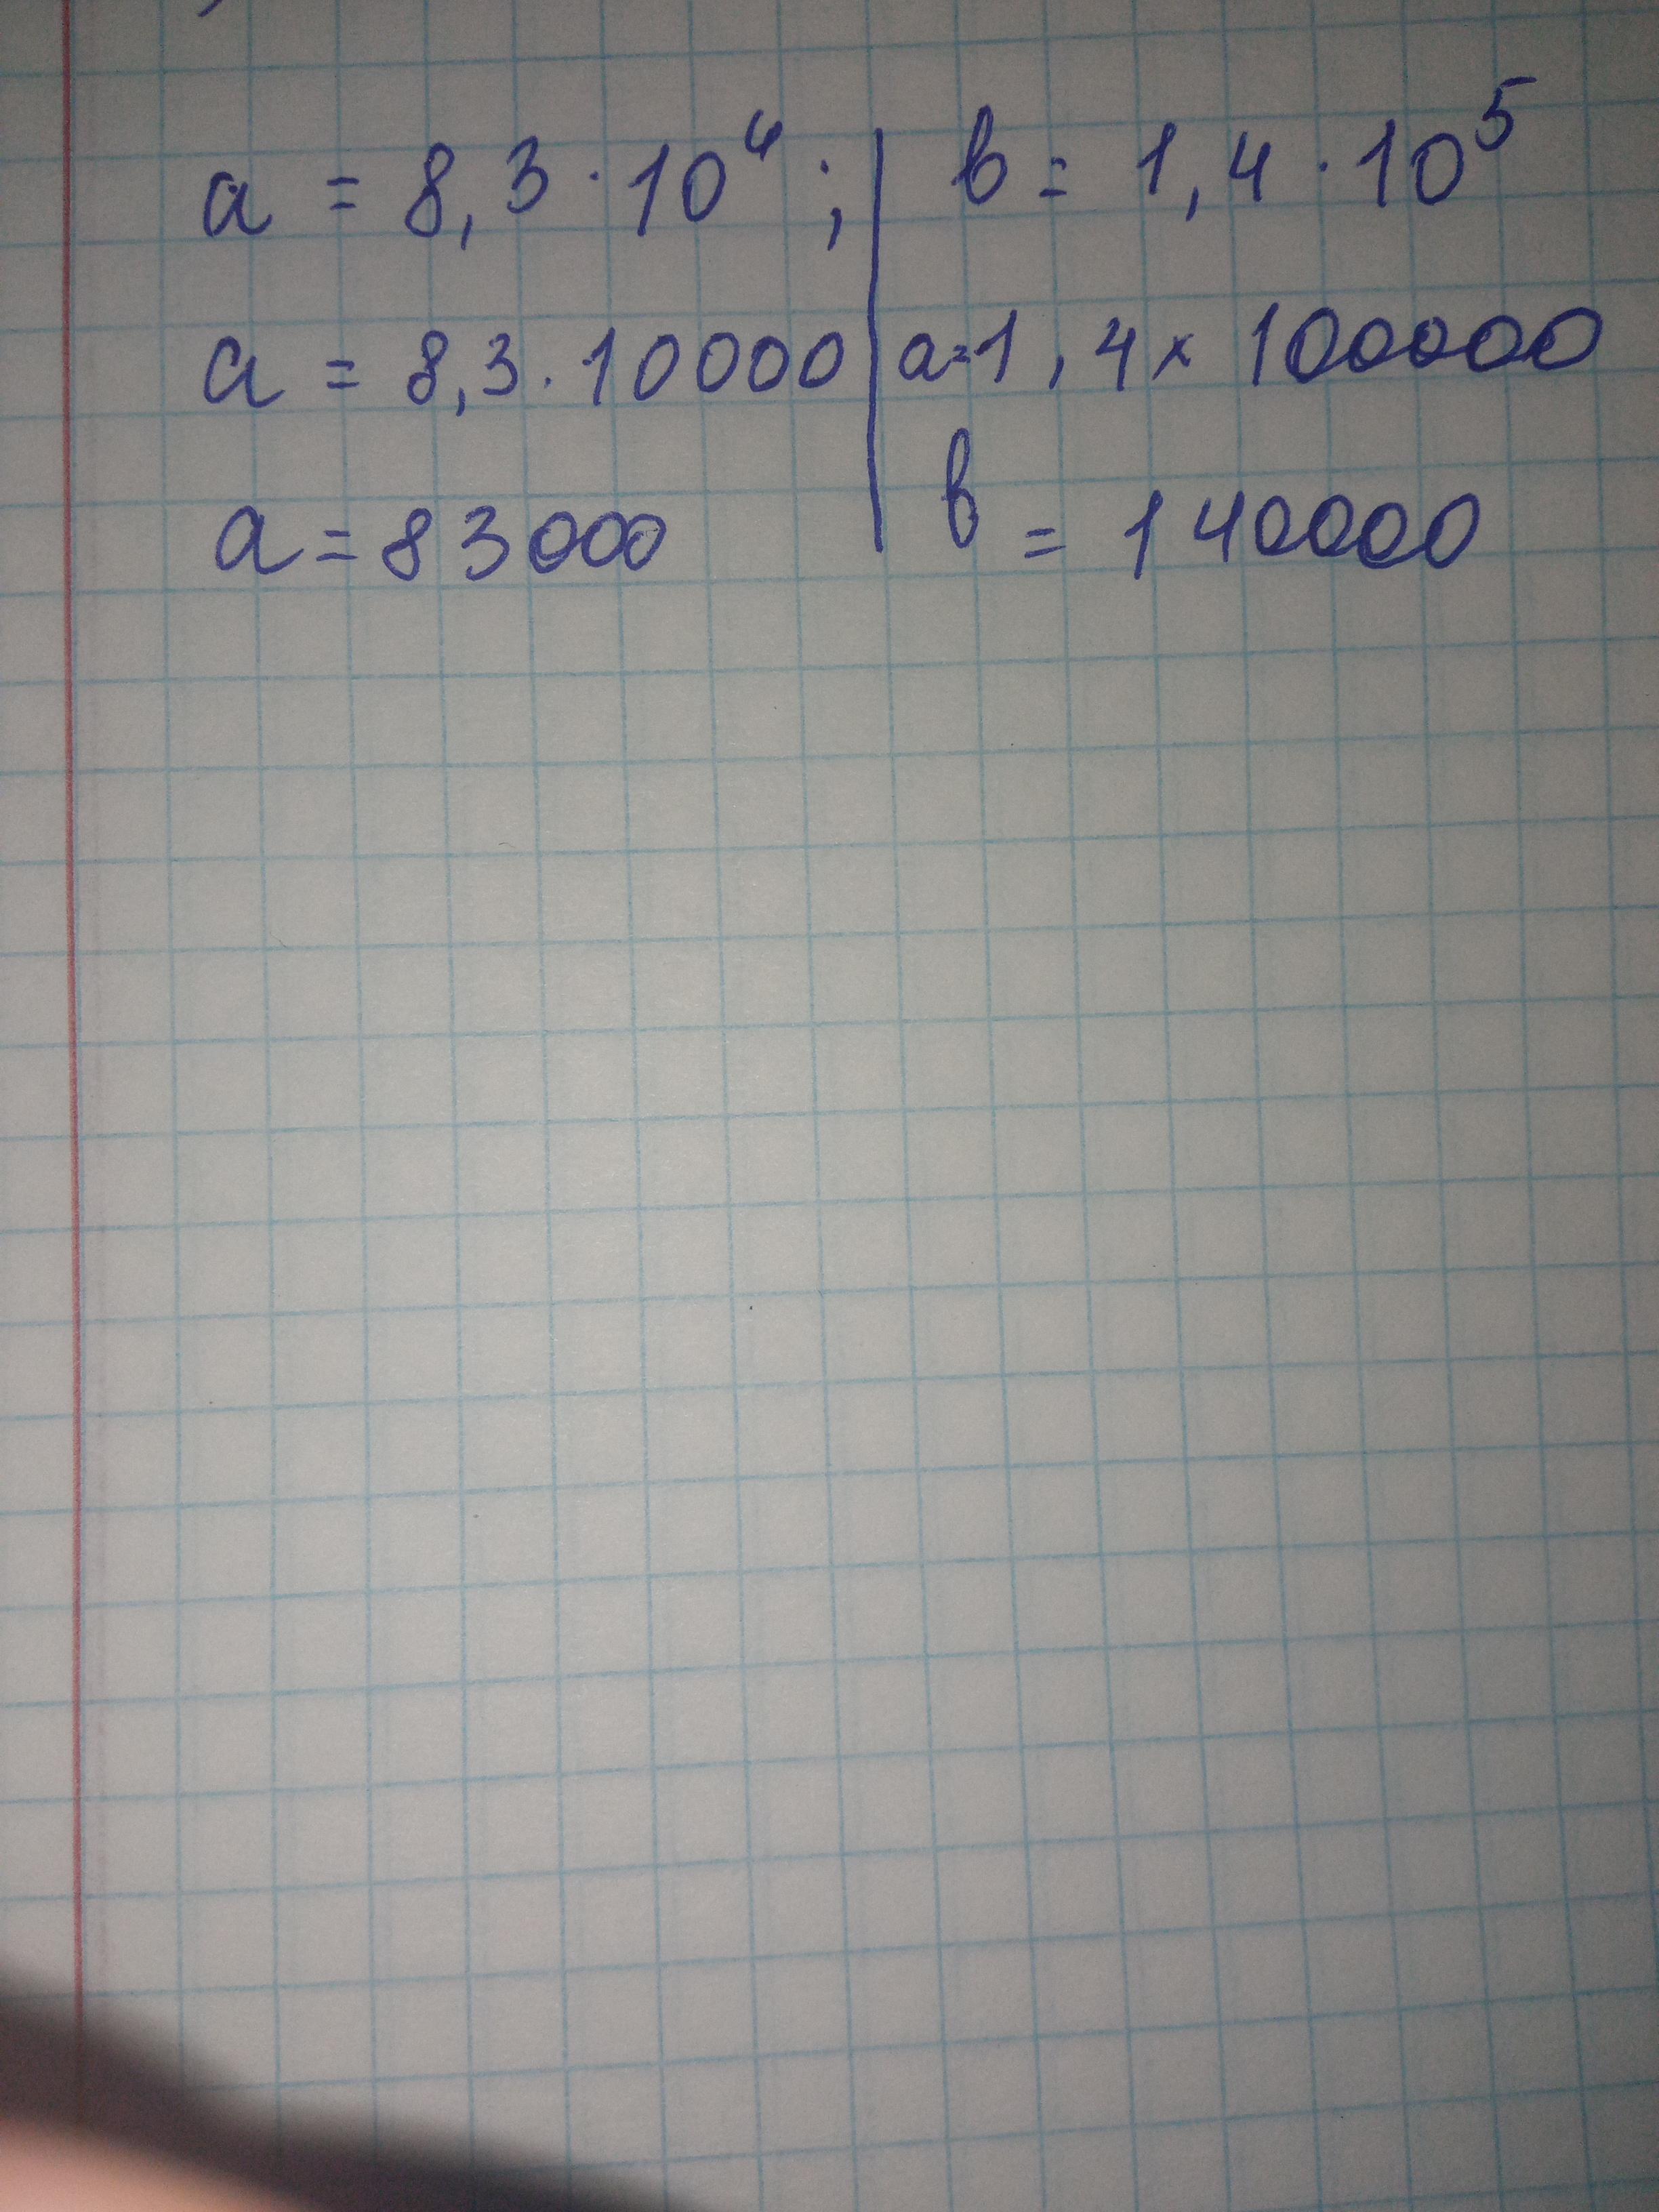 a = 8,3 · 10⁴ ; | b = 1,4 · 10⁵
a = 8,3 · 10000 | a = 1,4 × 100000
a = 83000 | b = 140000